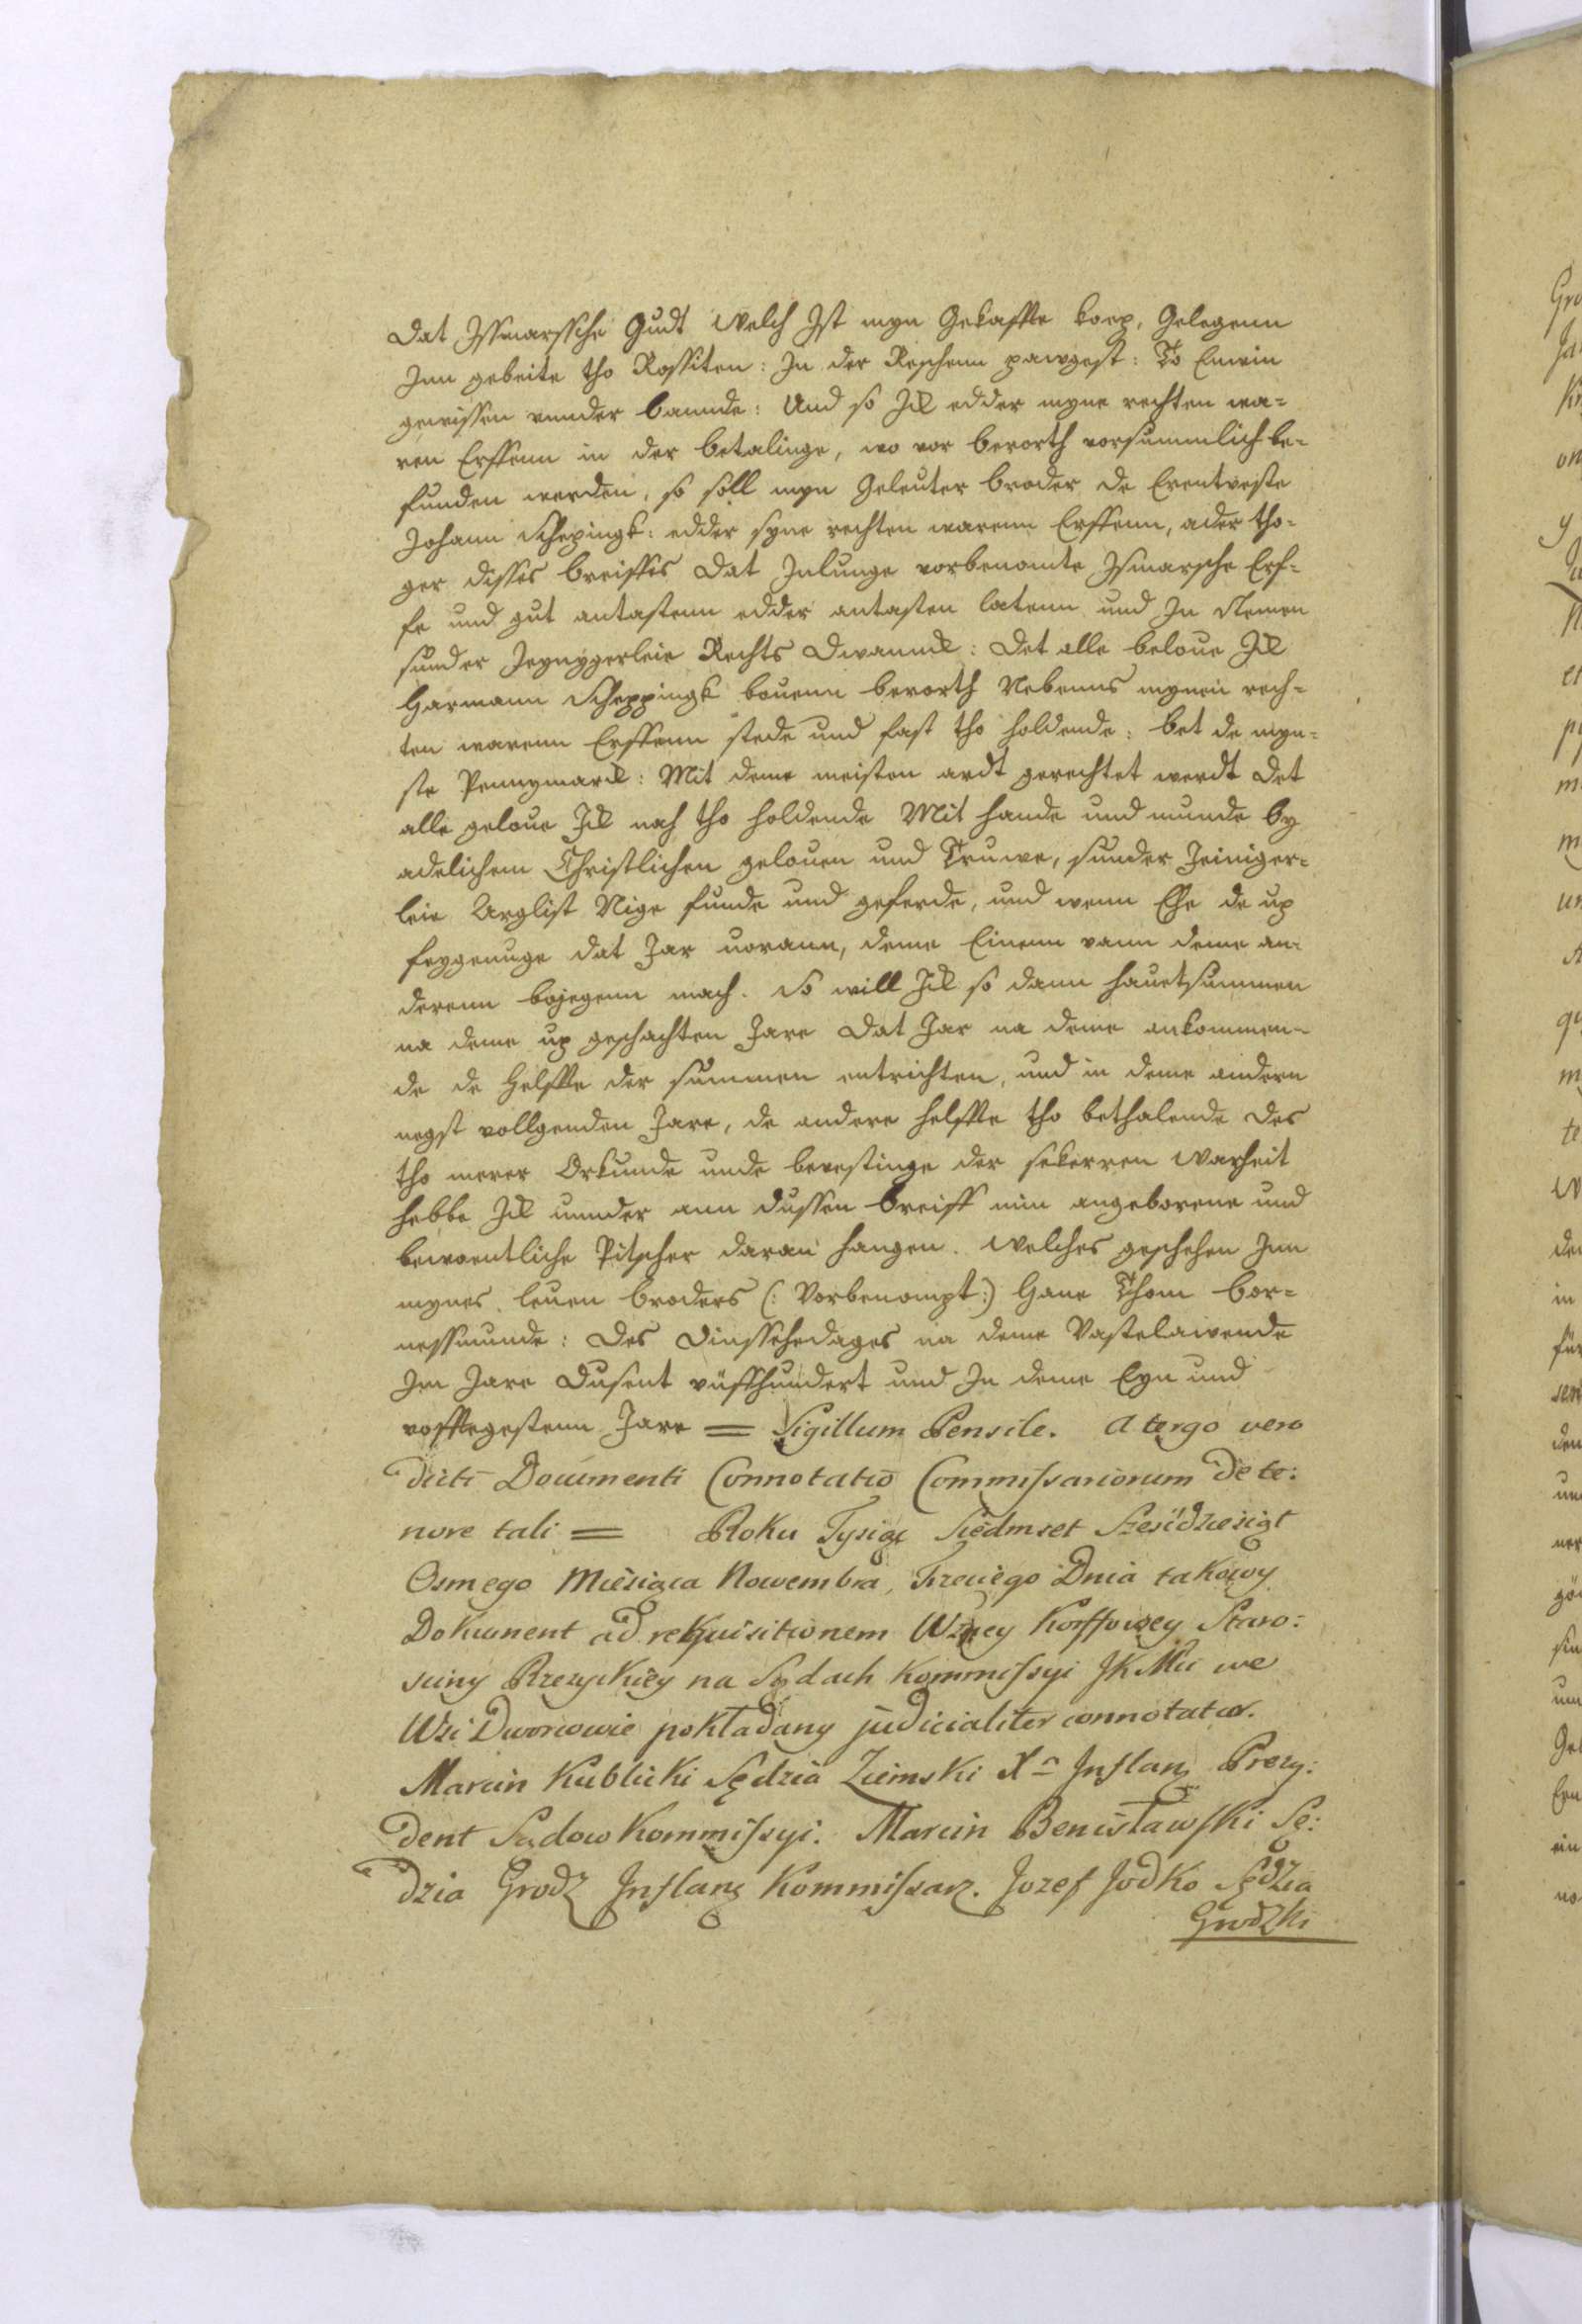 Dat Issmarssche Gudt welch Ist myn Gekaffte koep, Gelegenn
Inn gebeite tho Rossiten: In der Reschenn pawgest: To Enwin
gewissen vnnder bannde: Und so Ick edder myne rechten wa=
ren Erffenn in der betalinge, wo vor berorth vorsummlich be=
funden werden, so soll myn Geleuter broder de Erentveste
Johann Schepingk: edder syne rechten warenn Erffenn, ader tho=
ger disses breiffes Dat Inlunge vorbenomte Ismarsche Erf=
fe und gut antastenn edder antasten latenn und In Nemen
sunder Jeynygerleie Rechts Dwannck: Det alle beloue Ick
Harmann Scheppingk bouenn berorth Nebenns mynen rech=
ten warenn Erffenn stede und fast tho holdende: bet de myn=
ste Pennymarck: Mit deme meisten ardt gerechtet werdt Det
alle geloue Ick nach tho holdende Mit hande und munde by
adelichem Christlichen gelouen und Truwe, sunder Jeiniger=
leie Arglist Nige funde und geferde, und wenn Ehe de up
seggenuge dat Jar uorann, deme Einenn vann deme an=
derenn bejegenn mach. So will Ick so dann hauetsummen
na deme up geschachten Jare Dat Jar na deme ankommen=
de de Helffte der summen entrichten, und in deme andern
negst vollgenden Jare, de andere helffte tho bethalende Des
tho merer Orkunde unde bevestinge der sekerren Warheit
hebbe Ick unnder ann dussen breiff min angeborene und
bewoentliche Pitscher daran hangen. Welches geschehen Inn
mynes leuen broders (: Vorbenompt :) Haue Thom Bor=
nessmunde: Des Dinsschedages na deme Vastelawende
Im Jare Dusent vüffhundert und In deme Eyn und
vofftegestenn Jare = Sigillum Pensile. A tergo vero
dicti Documenti Connotatio Commissariorum de te:
nore tali = Roku Tysiąc Siedmset Szesdziesiąt
Osmego Miesiąca Nowembra, Trzeciego Dnia takowy
Dokument ad rekquisitionem Wżney Korffowey Staro:
sciny Rzezyckiey na Sądach Kommissyi JKMci we
Wsi Dworcowie pokładany judicialiter connotatur.
Marcin Kublicki Sędzia Ziemski Xa Inflang Prezy:
dent Sądow Kommissyi. Marcin Benisławski Sę:
dzia Grodz Inflang Kommissarz. Jozef Jodko Sędzia
Grodzki